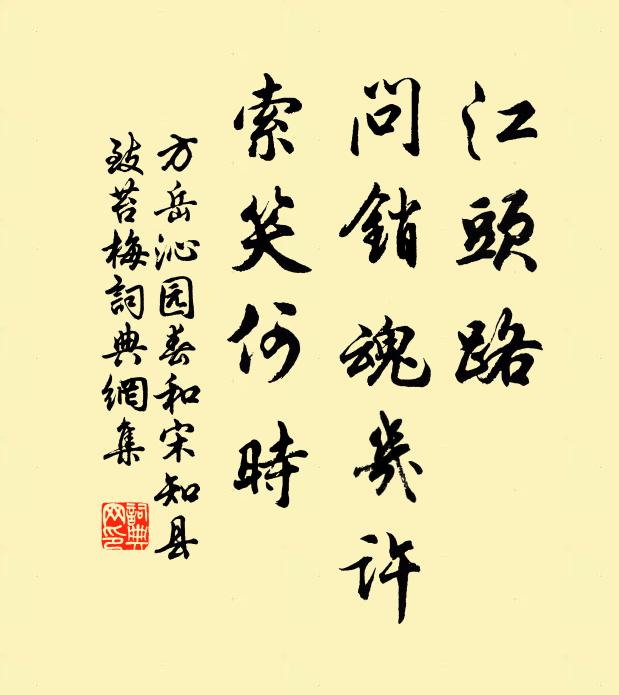 江頭路
問銷魂幾許
索笑何時
方岳沁园春和宋知县
致苔梅詞典網集
詞典网印